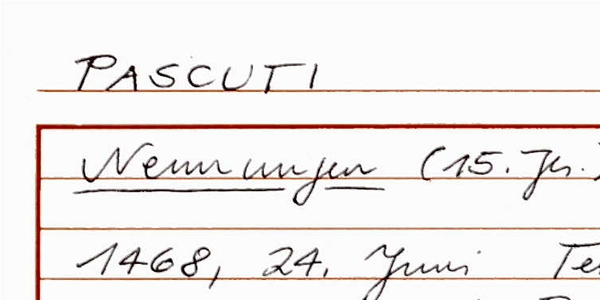 PASCUTI
Nennungen (15. Jh.)
1468, 24. Juni Te